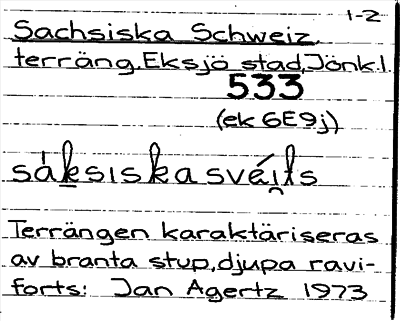 1-2
Sachsiska Schweiz
terräng. Eksjö stad, Jönk. l.
533
(ek 6E9j)
sàksiska svéi̯ls
Terrängen karaktäriseras
av branta stup, djupa ravi-
forts: Jan Agertz 1973